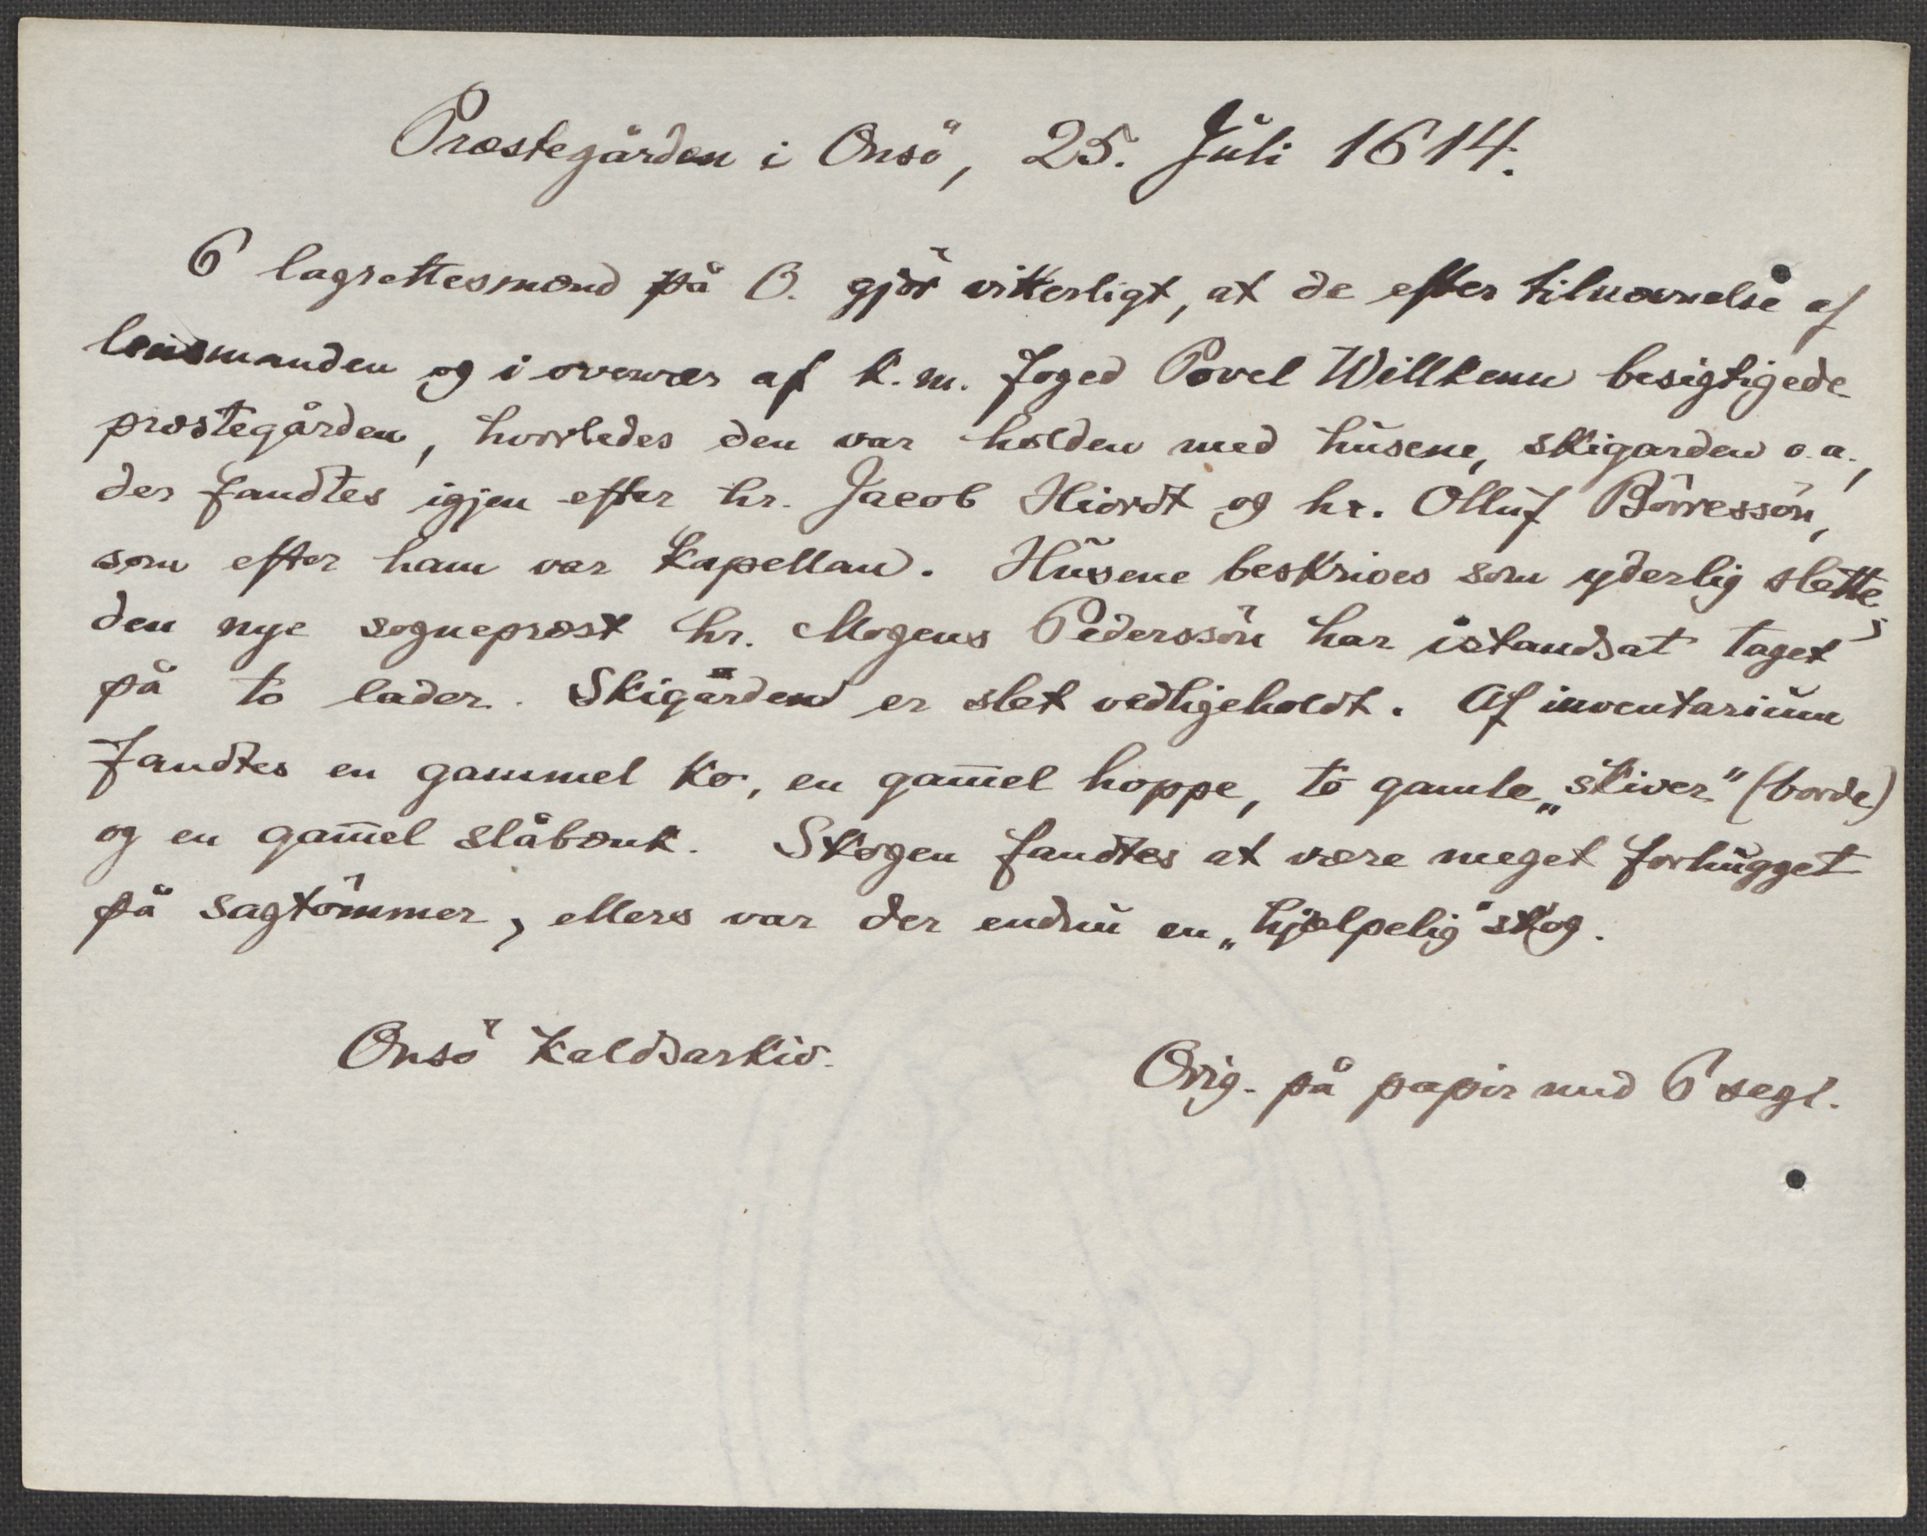 Præstegården i Onsö, 25. Juli 1614.
6 lagrettesmænd på O. gjör vitterligt, at de efter tilnævnelse af
lensmanden og i overvær af k. m. foged Povel Willkenn besigtigede
præstegården, hvorledes den var holden med husene, skigarden o. a.,
der fandtes igjen efter hr. Jacob Hiordt og hr. Olluf Börressön,
som efter ham var kapellan. Husene beskrives som yderlig slette,
den nye sognepræst hr. Mogens Pederssön har istandsat taget
på to lader. Skigården er slet vedligeholdt. Af inventarium
fandtes en gammel ko, en gam̅el hoppe, to gamle „skiver" (borde)
og en gam̅el slåbænk. Skogen fandtes at være meget forhugget
på sagtömmer, ellers var der endnu en „hjælpelig" skog.
Onsö kaldsarkiv.
Orig. på papir med 6 segl.